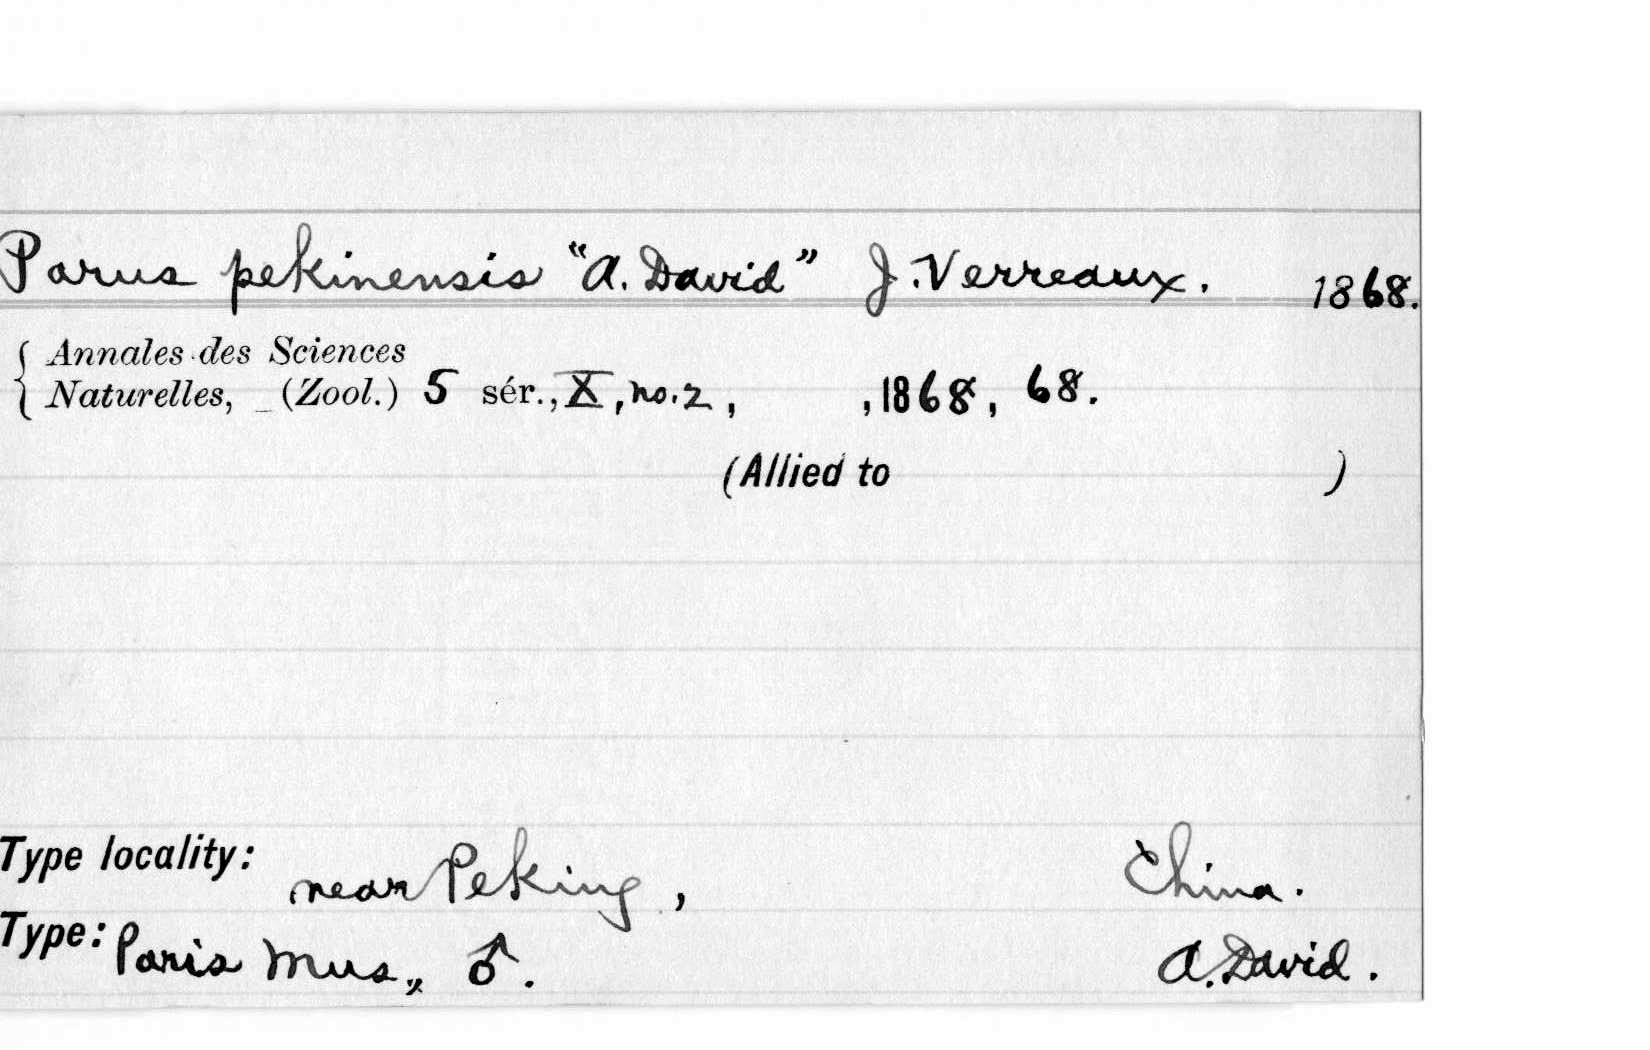 Parus pekinensis "A. David" J. Verreaux. 1868.
{ Annales des Sciences
Naturelles, _ (Zool.) 5 sér., X, no. 2, , 1868, 68.
(Allied to )
Type locality: near Peking, China.
Type: Paris Mus,, ♂. A. David.